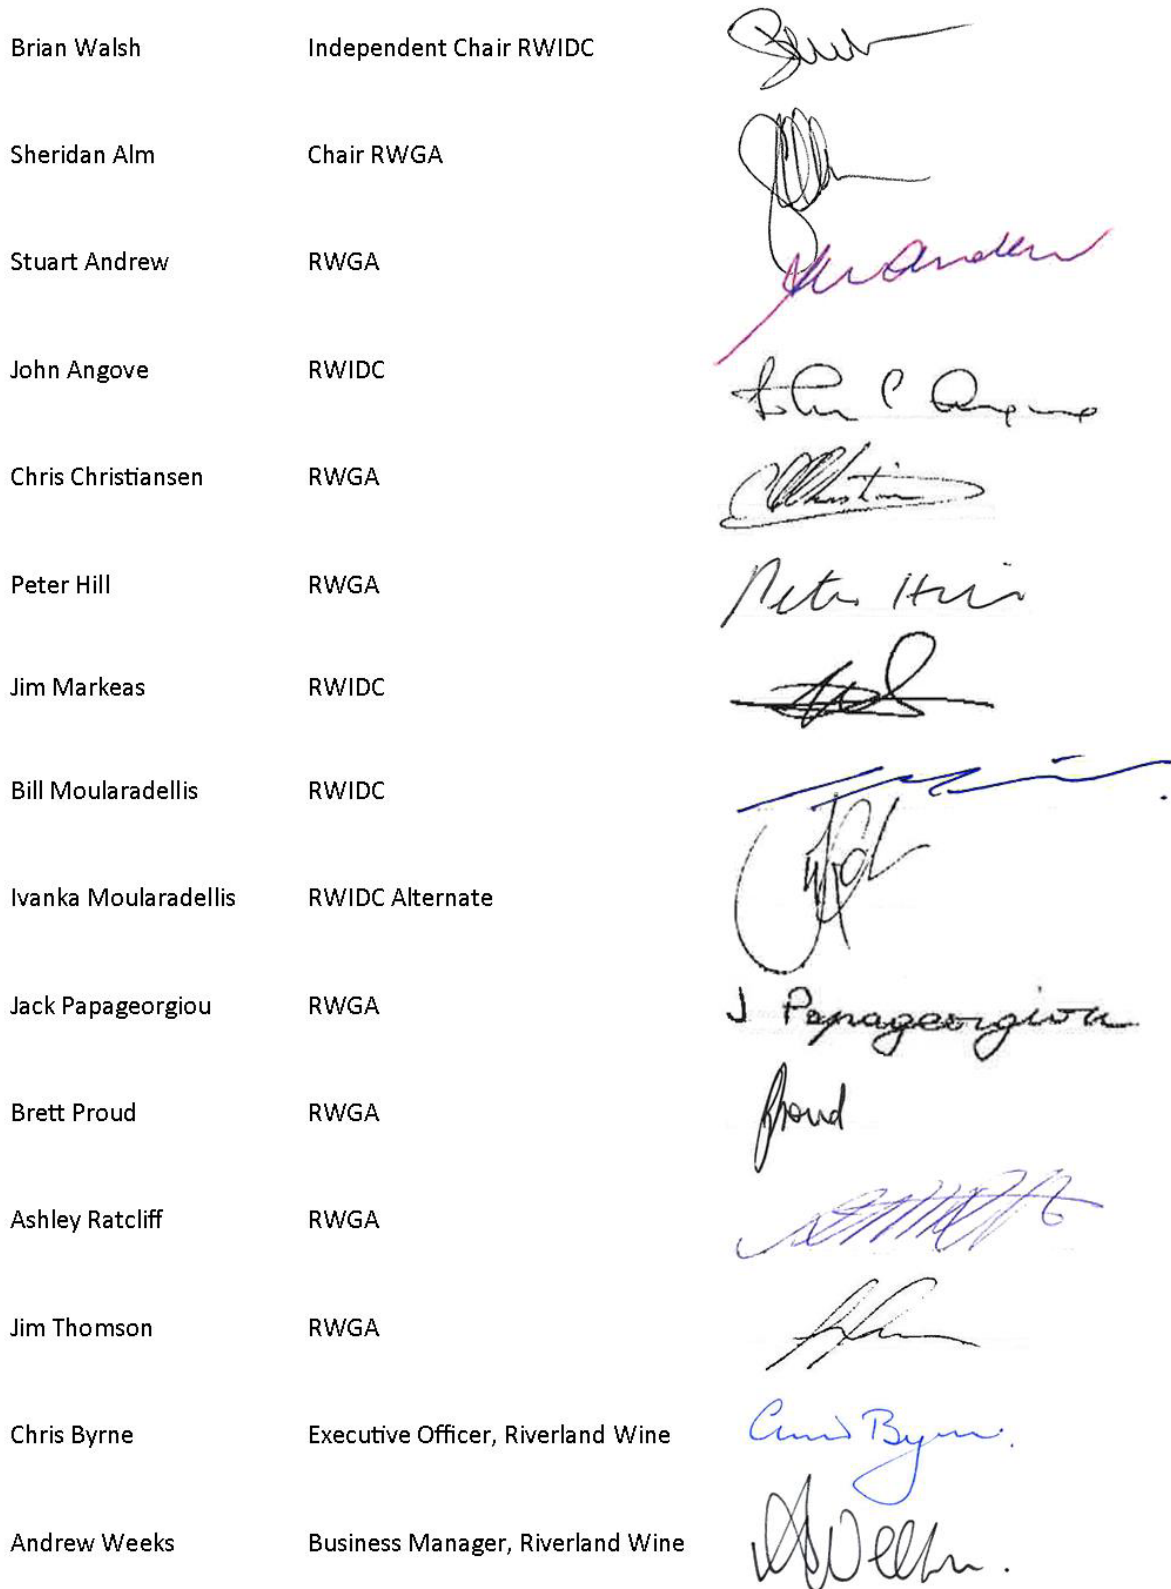 Brian Walsh Independent Chair RWIDC
Sheridan Alm Chair RWGA
Stuart Andrew RWGA
John Angove RWIDC
Chris Christiansen RWGA
Peter Hill RWGA Peter Hill
Jim Markeas RWIDC
Bill Moularadellis RWIDC
Ivanka Moularadellis RWIDC Alternate
Jack Papageorgiou RWGA J Papageorgiou
Brett Proud RWGA Proud
Ashley Ratcliff RWGA
Jim Thomson RWGA
Chris Byrne Executive Officer, Riverland Wine
Andrew Weeks Business Manager, Riverland Wine